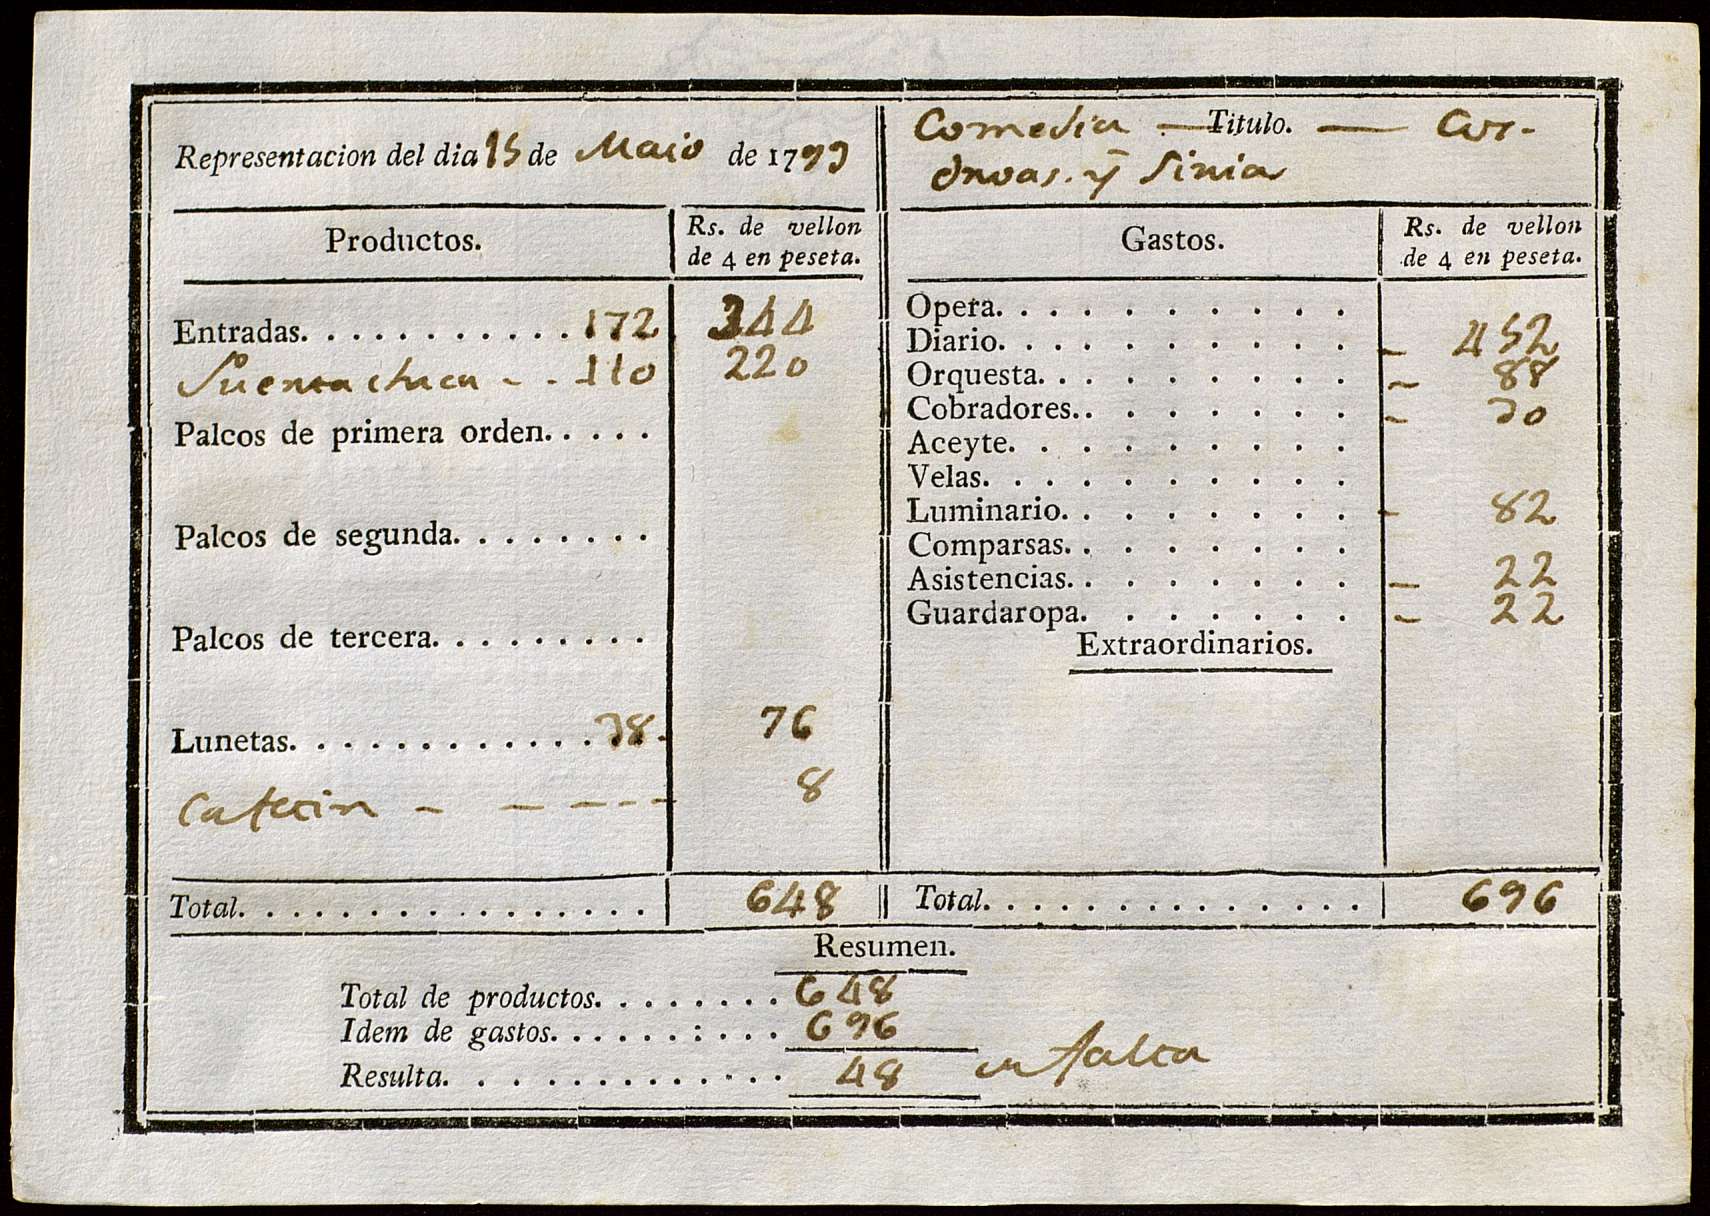 Representacion del dia 15 de Maio de 1799
Productos. Rs. de vellon de 4 en peseta.
Entradas. . . . . . . . . . . 172 344
chica - - 110 220
Palcos de primera orden. . . . .
Palcos de segunda. . . . . . . .
Palcos de tercera. . . . . . . . .
Lunetas. . . . . . . . . . . . 38. 76
- - - - - 8
Total. . . . . . . . . . . . . . . . 648
Comedia — Titulo. — Cor-
dovas. y
Gastos. Rs. de vellon de 4 en peseta.
Opera. . . . . . . . . . .
Diario. . . . . . . . . . . - 452
Orquesta. . . . . . . . . - 88
Cobradores. . . . . . . . - 30
Aceyte. . . . . . . . . .
Velas. . . . . . . . . . .
Luminario. . . . . . . . - 82
Comparsas. . . . . . . .
Asistencias. . . . . . . . - 22
Guardaropa. . . . . . . - 22
Extraordinarios.
Total. . . . . . . . . . . . . . . 696
Resumen.
Total de productos. . . . . . . . 648
Idem de gastos. . . . . . : . . . 696
Resulta. . . . . . . . . . . . . 48 en falta